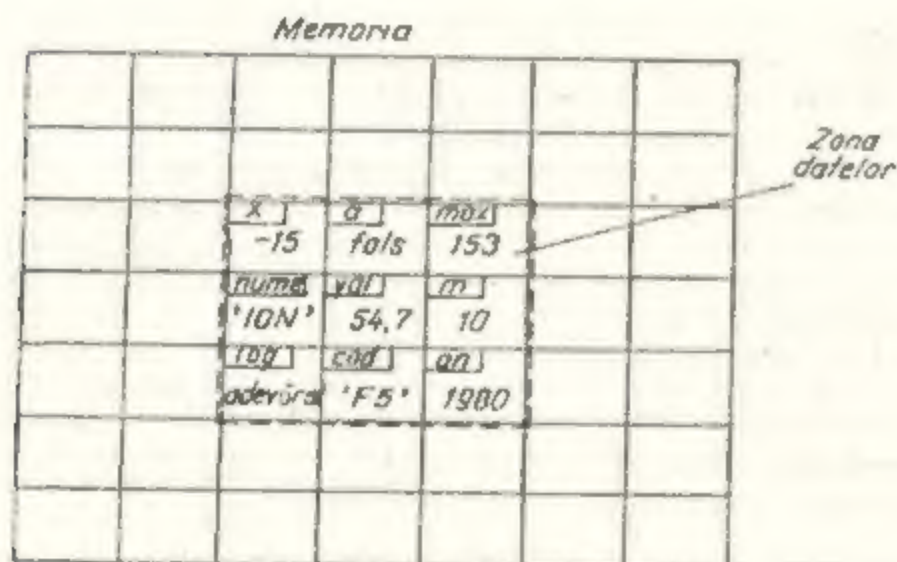 Memoria
Zona
datelor
x a max
-15 fals 153
nume val m
'ION' 54,7 10
cod an
adevărat 'F5' 1980